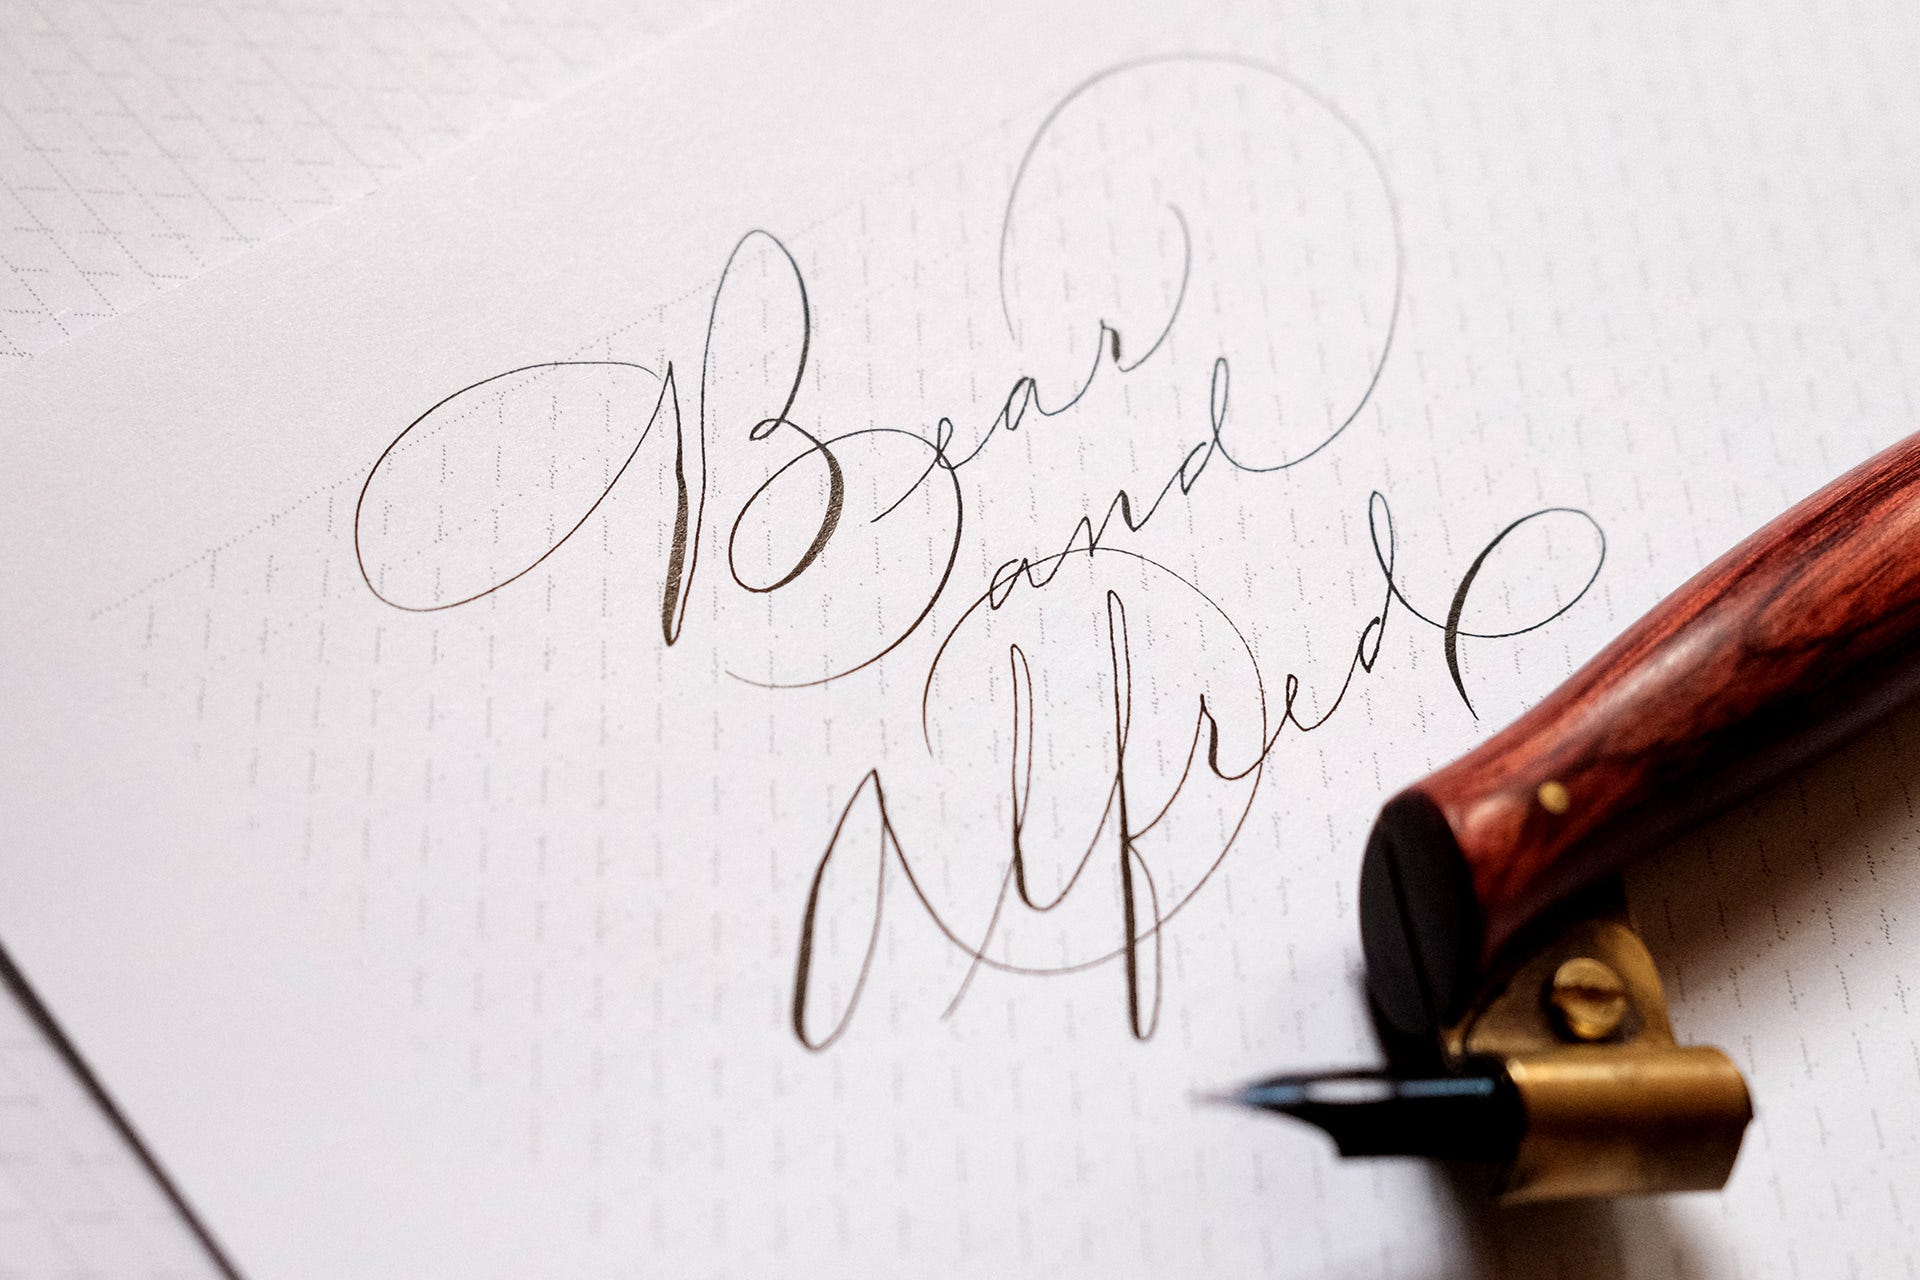 Bear
and
Alfred